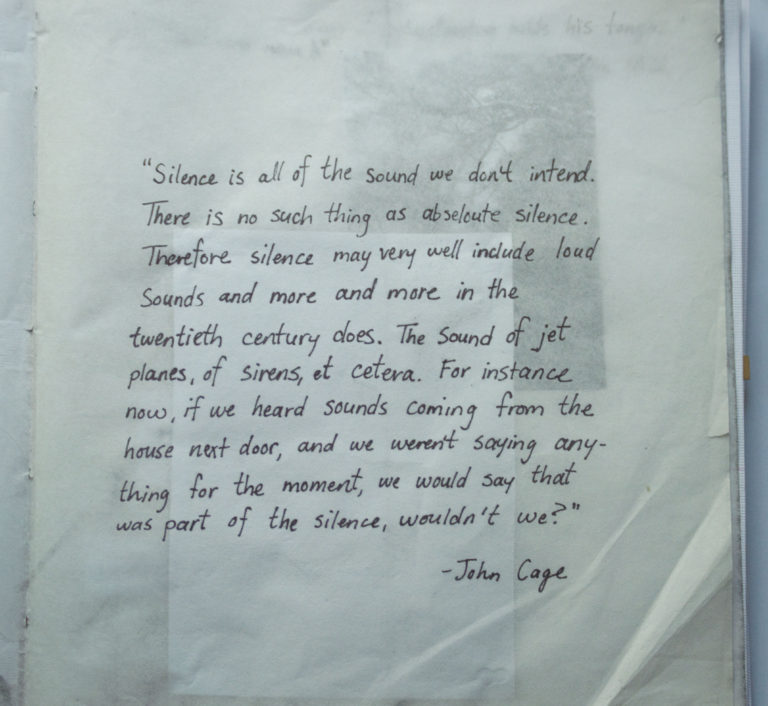 "Silence is all of the sound we don't intend.
There is no such thing as abseloute silence.
Therefore silence may very well include loud
sounds and more and more in the
twentieth century does. The sound of jet
planes, of sirens, et cetera. For instance
now, if we heard sounds coming from the
house next door, and we weren't saying any-
thing for the moment, we would say that
was part of the silence, wouldn't we?"
-John Cage